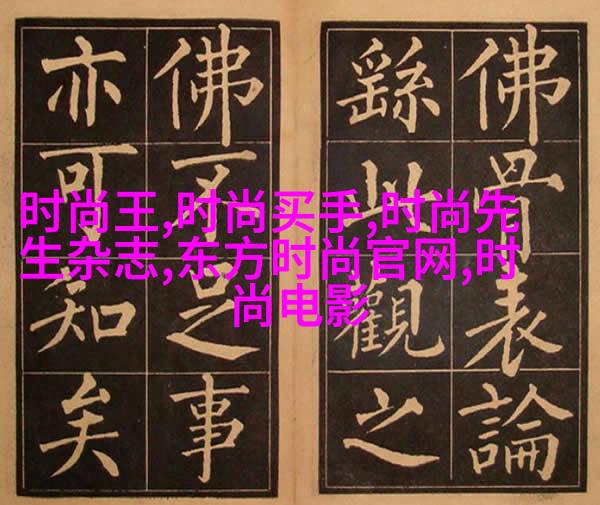 时尚王,时尚买手,时尚先
生杂志,东方时尚官网,时
尚电影
佛骨表論
繇此觀之
佛不足事
亦可知矣